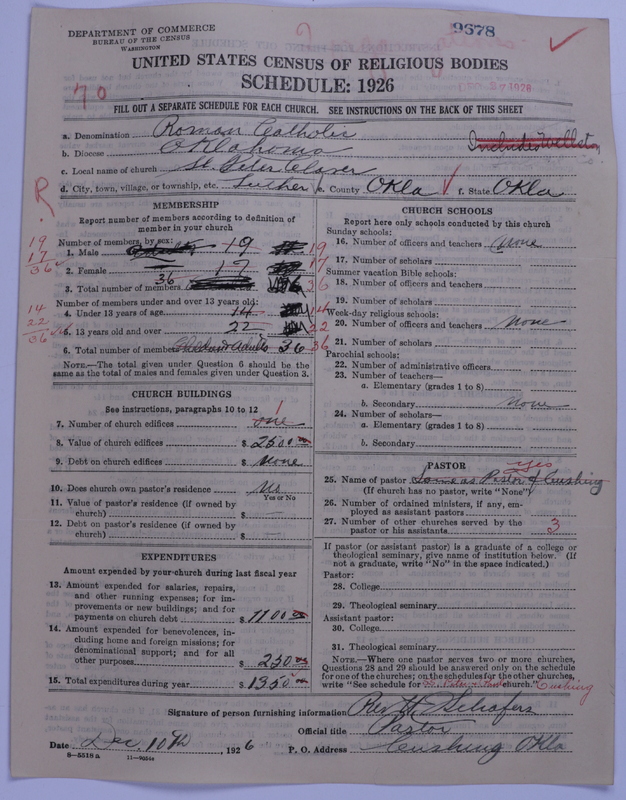 DEPARTMENT OF COMMERCE
BUREAU OF THE CENSUS
WASHINGTON
9678
UNITED STATES CENSUS OF RELIGIOUS BODIES
SCHEDULE: 1926
DEC 27 1926
70
FILL OUT A SEPARATE SCHEDULE FOR EACH CHURCH. SEE INSTRUCTIONS ON THE BACK OF THIS SHEET
a. Denomination Roman Catholic
b. Diocese Oklahoma
Includes Wellston
c. Local name of church St. Peter Claver
d. City, town, village, or township, etc. Luther e. County Okla f. State Okla
R.
MEMBERSHIP
Report number of members according to definition of member in your church
Number of members, by sex:
1. Male 19 19
2. Female 17 17
3. Total number of members 36 36
19
17
36
Number of members under and over 13 years old:
4. Under 13 years of age 14 14
5. 13 years old and over 22 22
6. Total number of members Child and adults 36 36
14
22
36
NOTE.—The total given under Question 6 should be the same as the total of males and females given under Question 3.
CHURCH BUILDINGS
See instructions, paragraphs 10 to 12
7. Number of church edifices one 1
8. Value of church edifices $ 2500.00
9. Debt on church edifices $ None
10. Does church own pastor's residence No
Yes or No
11. Value of pastor's residence (if owned by church) $ —
12. Debt on pastor's residence (if owned by church) $ —
EXPENDITURES
Amount expended by your church during last fiscal year
13. Amount expended for salaries, repairs, and other running expenses; for improvements or new buildings; and for payments on church debt $ 1100 00
14. Amount expended for benevolences, including home and foreign missions; for denominational support; and for all other purposes $ 250.00
15. Total expenditures during year $ 1350 00
CHURCH SCHOOLS
Report here only schools conducted by this church
Sunday schools:
16. Number of officers and teachers None
17. Number of scholars
Summer vacation Bible schools:
18. Number of officers and teachers
19. Number of scholars
Week-day religious schools:
20. Number of officers and teachers None
21. Number of scholars
Parochial schools:
22. Number of administrative officers
23. Number of teachers—
a. Elementary (grades 1 to 8)
b. Secondary None
24. Number of scholars—
a. Elementary (grades 1 to 8)
b. Secondary
PASTOR
yes
25. Name of pastor Same as Pastor of Cushing
(If church has no pastor, write "None")
26. Number of ordained ministers, if any, employed as assistant pastors
27. Number of other churches served by the pastor or his assistants 3
If pastor (or assistant pastor) is a graduate of a college or theological seminary, give name of institution below. (If not a graduate, write "No" in the space indicated.)
Pastor:
28. College
29. Theological seminary
Assistant pastor:
30. College
31. Theological seminary
NOTE.—Where one pastor serves two or more churches, Questions 28 and 29 should be answered only on the schedule for one of the churches; on the schedules for the other churches, write "See schedule for SS. Peter & Paul church." Cushing
Signature of person furnishing information Rev. H. Schafers
Official title Pastor
Date Dec. 10th, 1926 P. O. Address Cushing Okla
8—5518 a